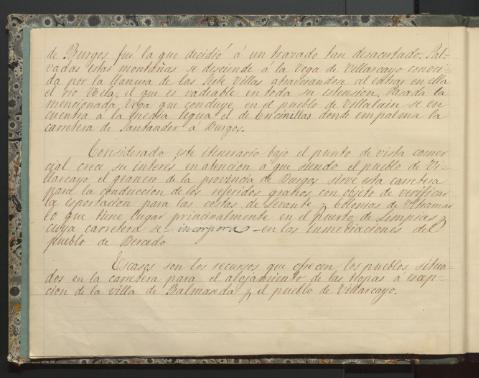 de Burgos fué la que decidió á un trazado tan desacertado. Sal-
vadas estas montañas se desciende á la Vega de Villarcayo conoci-
da por la llanura de las Siete Villas atravesandose al entrar en ella
el rio Nela, el que es vadeable en toda su estension. Pasada la
mencionada Vega que conduce en el pueblo de Villalain se en
cuentra á la media legua el de Encinillas donde empalma la
carretera de Santander á Burgos.
Considerado este itinerario bajo el punto de vista comer
cial crece su interes en atencion á que siendo el pueblo de Vi-
llarcayo el granero de la provincia de Burgos sirve esta carretera
para la conduccion de los referidos granos con objeto de verificar
la esportacion para las costas de Levante y Colonias de Ultramar
lo que tiene lugar principalmente en el puerto de
cuya carretera se incorpora en las inmediaciones del
pueblo de Bercedo.
Escasos son los recursos que ofrecen los pueblos situa-
dos en la carretera para el alojamiento de las tropas á escep-
cion de la villa de Balmaseda y el pueblo de Villarcayo.